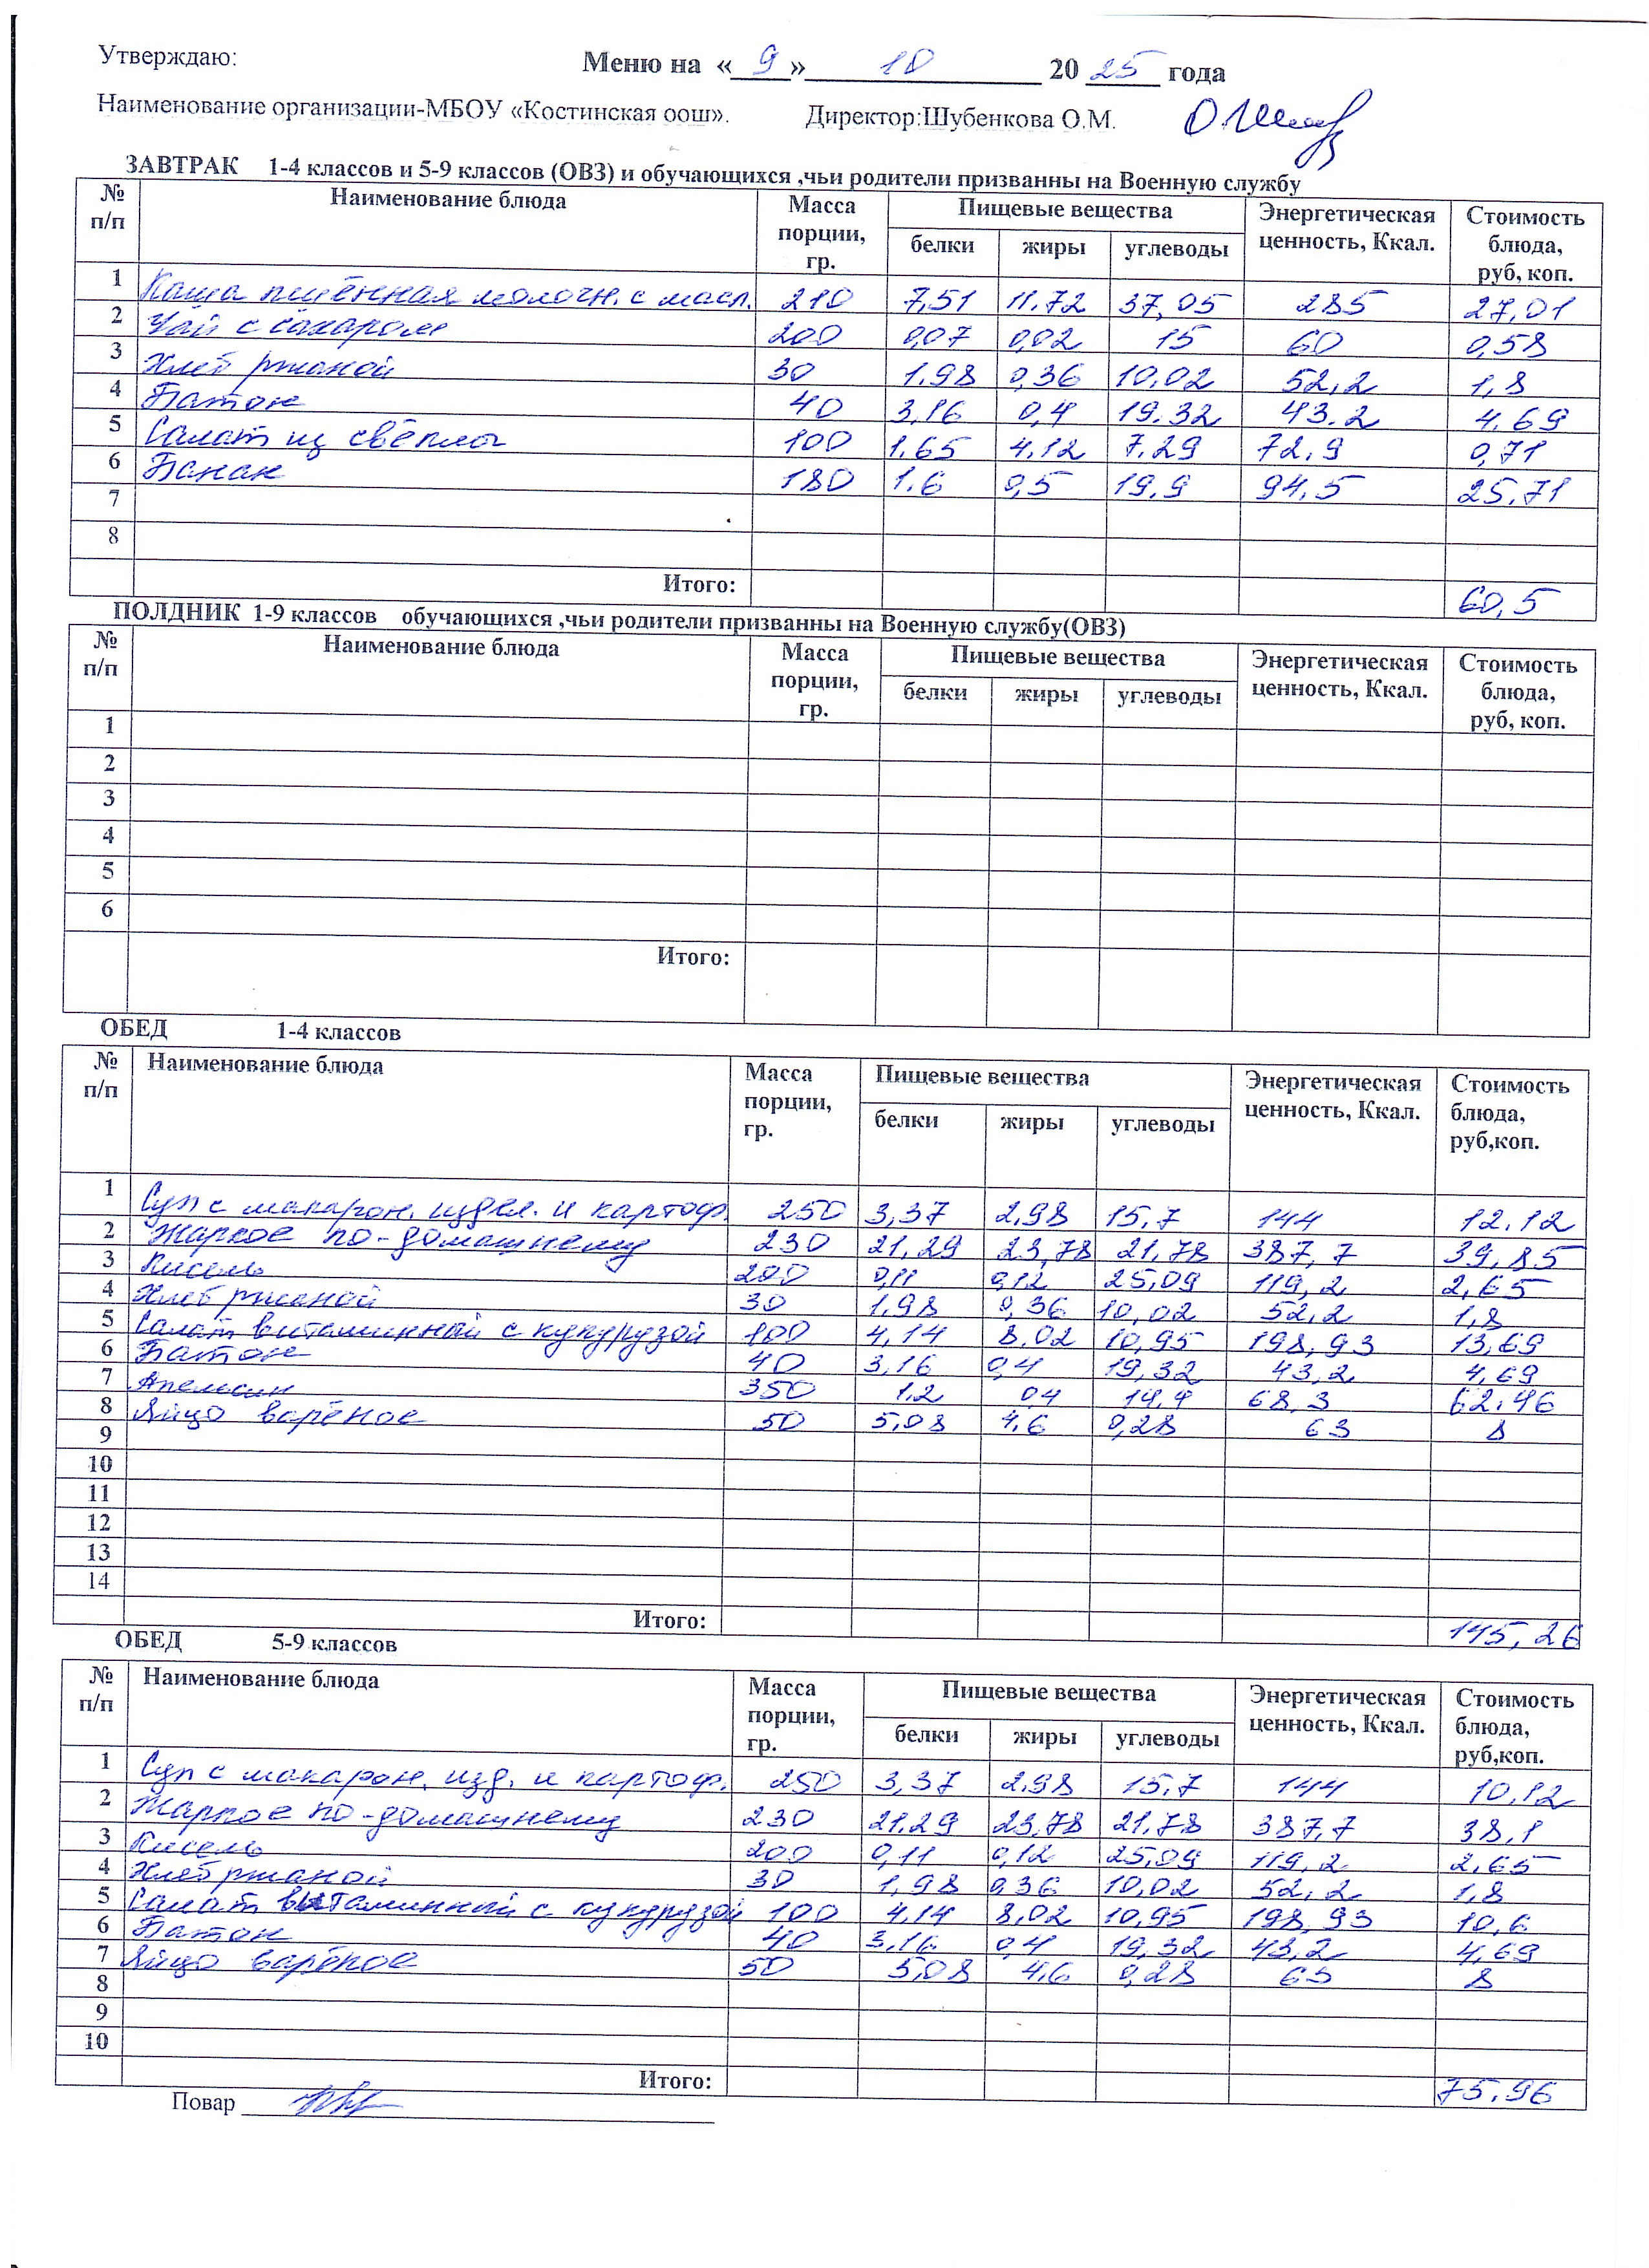 Утверждаю:
Меню на «9» 10 2025 года
Наименование организации-МБОУ «Костинская оош». Директор:Шубенкова О.М.
ЗАВТРАК 1-4 классов и 5-9 классов (ОВЗ) и обучающихся ,чьи родители призванны на Военную службу
№ п/п Наименование блюда Масса порции, гр. Пищевые вещества Энергетическая ценность, Ккал. Стоимость блюда, руб, коп.
белки жиры углеводы
1 Каша пшённая молочн. с масл. 210 7,51 11.72 37,05 285 27,01
2 Чай с сахаром 200 0,07 0,02 15 60 0,58
3 Хлеб ржаной 30 1.98 0,36 10,02 52,2 1,8
4 Батон 40 3,16 0,4 19.32 43.2 4,69
5 Салат из свёклы 100 1.65 4,12 7.29 72.9 0,71
6 Банан 180 1.6 0,5 19,9 94,5 25,71
7
8
Итого: 60,5
ПОЛДНИК 1-9 классов обучающихся ,чьи родители призванны на Военную службу(ОВЗ)
№ п/п Наименование блюда Масса порции, гр. Пищевые вещества Энергетическая ценность, Ккал. Стоимость блюда, руб, коп.
белки жиры углеводы
1
2
3
4
5
6
Итого:
ОБЕД 1-4 классов
№ п/п Наименование блюда Масса порции, гр. Пищевые вещества Энергетическая ценность, Ккал. Стоимость блюда, руб,коп.
белки жиры углеводы
1 Суп с макарон. издел. и картоф. 250 3,37 2,98 15,7 144 12.12
2 Жаркое по-домашнему 230 21,29 23,78 21,78 387,7 39,85
3 Кисель 200 0,11 0,12 25,09 119,2 2,65
4 Хлеб ржаной 30 1,98 0,36 10,02 52,2 1,8
5 Салат витаминный с кукурузой 100 4,14 8,02 10,95 198,93 13,69
6 Батон 40 3,16 0,4 19,32 43,2 4,69
7 Апельсин 350 1,2 04 14,4 68,3 62.46
8 Яйцо варёное 50 5,08 4,6 0,28 63 8
9
10
11
12
13
14
Итого: 145,26
ОБЕД 5-9 классов
№ п/п Наименование блюда Масса порции, гр. Пищевые вещества Энергетическая ценность, Ккал. Стоимость блюда, руб,коп.
белки жиры углеводы
1 Суп с макарон. изд. и картоф. 250 3,37 2,98 15,7 144 10,12
2 Жаркое по-домашнему 230 21,29 23,78 21,78 387,7 38,1
3 Кисель 200 0,11 0,12 25,09 119,2 2,65
4 Хлеб ржаной 30 1,98 0,36 10,02 52,2 1,8
5 Салат витаминный с кукурузой 100 4,14 8,02 10,95 198,93 10,6
6 Батон 40 3,16 0,4 19,32 43,2 4,69
7 Яйцо варёное 50 5,08 4,6 0,28 63 8
8
9
10
Итого: 75,96
Повар